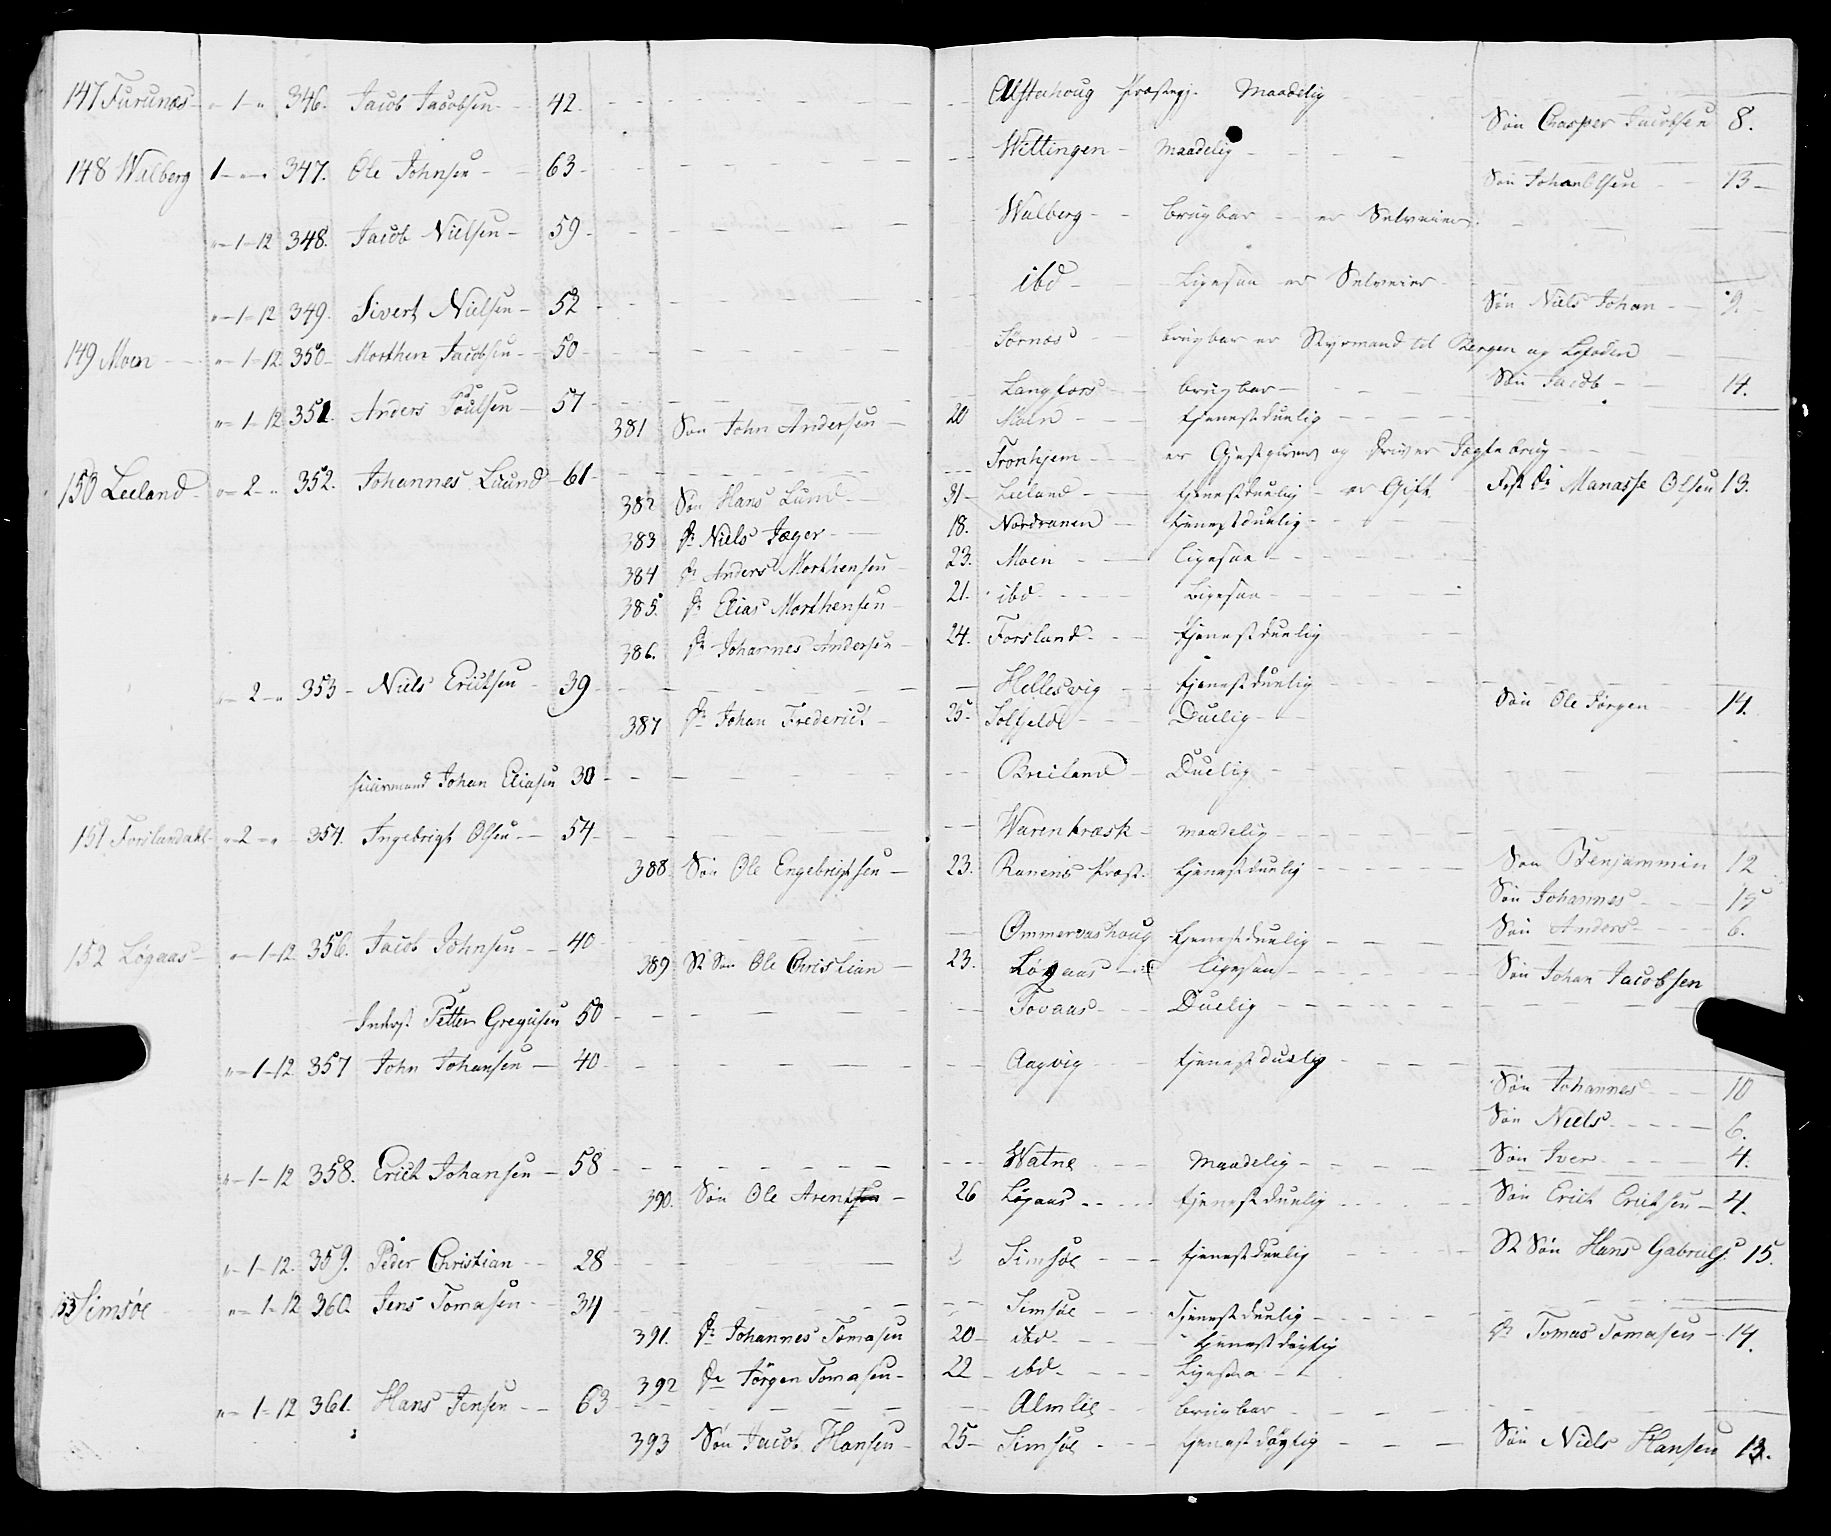 147 Furunæs - " 1 - " 346. Jacob Jacobsen - 42. - - - Alstahoug Præstegj. Maadelig
Søn Chasper Jacobsen 8.
148 Walberg 1 - " - " 347. Ole Johnsen - 63 - - - Wittingen - Maadelig - - -
Søn Johan Olsen - 13 -
" - 1 - 12 348. Jacob Nielsen - 59 - - - Walberg - brugbar - er Selveier -
" - 1 - 12 349. Sivert Nielsen - 52 - - - ibd - Ligesaa er Selveier -
Søn Niels Johan - 9. -
149 Moen - " - 1 - 12 350 - Morthen Jacobsen - 50 - - - Sørnæs - brugbar er Styrmand til Bergen og Lofoden -
Søn Jacob - 14.
" - 1 - 12 351. Anders Poulsen - 57 - - - Langfors - brugbar -
381 Søn John Andersen - 20 Moen - tjenestduelig - - -
150 Leeland - " - 2 - " 352. Johannes Lund - 61 - - - Tronhjem - er Gjestgiver og driver Jægtebrug -
382 Søn Hans Lund - 31 - Leeland - tjenestduelig - er Gift - Manasse Olsen 13.
383 Dr Niels Jæger - 18. Nordranen - tjenestduelig - - -
384 Dr Anders Morthensen - 23. Moen - Ligesaa - - -
385. Dr Elias Morthensen - 21. ibd - Ligesaa - - -
386. Dr Johannes Andersen - 24. Forsland - tjenestduelig
" - 2 - " 353 - Niels Ericksen - 39 - - - Hellesvig - tjenestduelig - - -
387 Dr Johan Frederick - 25 - Solfjeld - Duelig - -
Søn Ole Jørgen - 14.
Johan Eliasen 30 - - - Breiland - Duelig -
151 Forslandahl - " - 2 - " 354. Ingebrigt Olsen - 54 - - - Warentræsk - maadelig - - -
388. Søn Ole Engebrigtsen - 23. Ranens Præst. tjenestduelig - - -
Søn Benjammin 12
Søn Johannes - 15
Søn Anders - 6.
152 Løgaas - " - 1 - 12 356. Jacob Johnsen - 40 - - - Ommervashoug - tjenestduelig - - -
389 St Søn Ole Christian - 23. Løgaas - Ligesaa - - -
Søn Johan Jacobsen
Inderst Petter Gregusen 50 - - - Tovaas - Duelig - - -
" - 1 - 12 357 John Johansen - 40 - - - Aagvig - tjenestduelig - - -
Søn Johannes - 10
Søn Niels - 6.
Søn Iver - 4.
" - 1 - 12 358. Erich Johansen - 58 - - - Watne - maadelig - - -
390. Søn Ole Arentsen - 26 Løgaas - tjenestduelig - - - Søn Erich Erichsen - 4.
" - 1 - 12. 359. Peder Christian - 28 - - - Simsøe - tjenestduelig - - - St Søn Hans Gabriels. 15.
153 Simsøe - " - 1 - 12 360. Jens Tomasen - 34 - - - Simsøe - Tjenestduelig - - -
391. Dr Johannes Tomasen 20 - ibd - tjenestdøgtig
Dr Tomas Tomasen - 14.
392 Dr Jørgen Tomasen - 22 - ibd - Ligesaa -
" - 1 - 12 361. Hans Jensen - 63 - - - Almlie - brugbar - - -
393 Søn Jacob Hansen - 25 - Simsøe - tjenestdøgtig - - - Søn Niels Hansen 13.